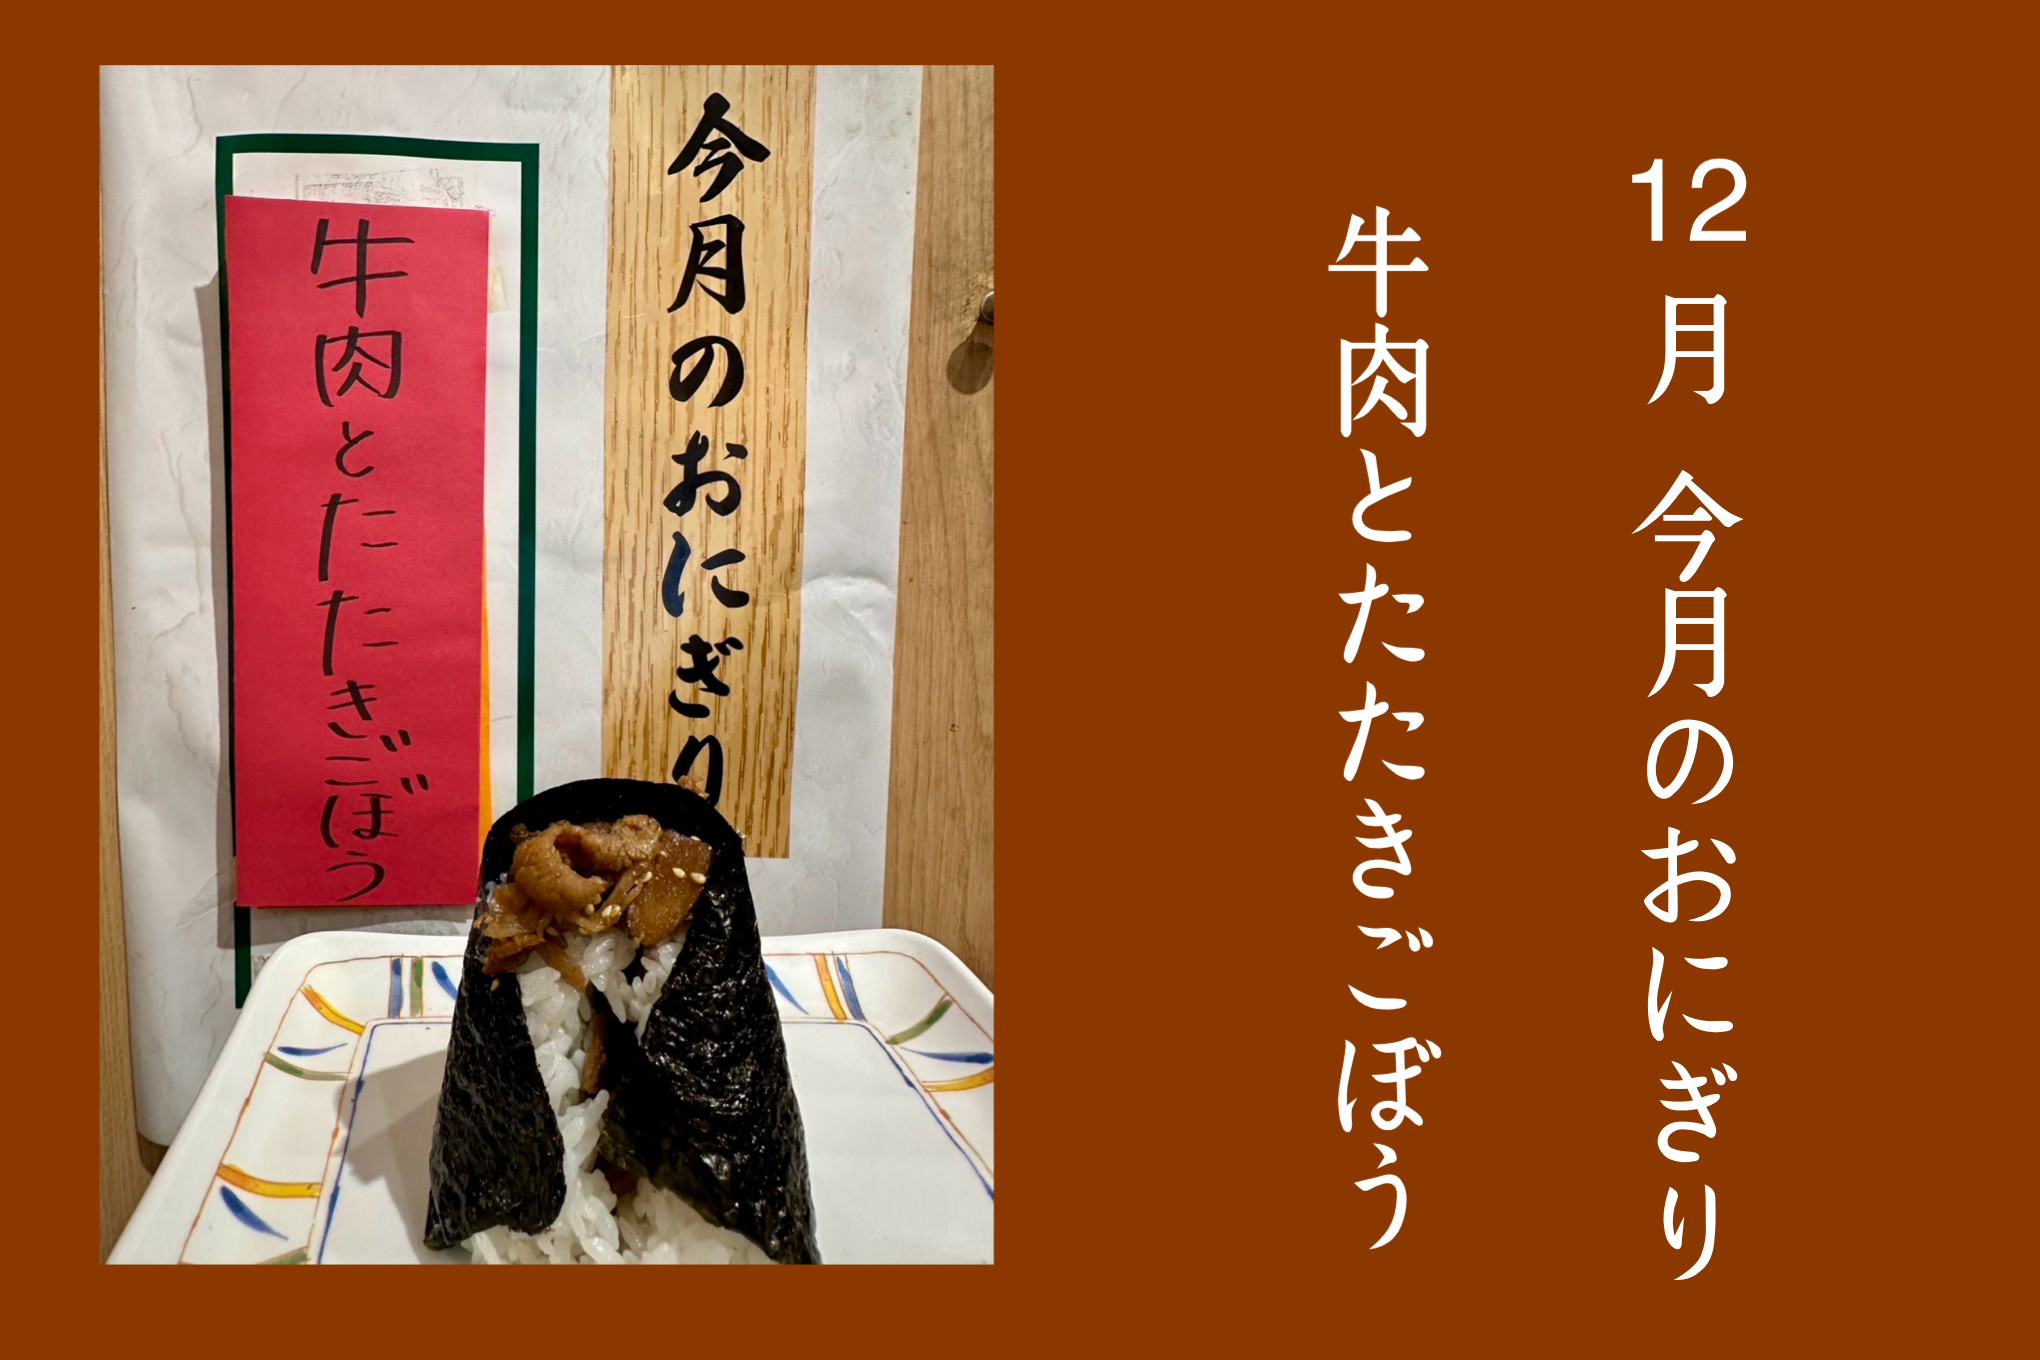 12月 今月のおにぎり
牛肉とたたきごぼう
今月のおにぎり
牛肉とたたきごぼう